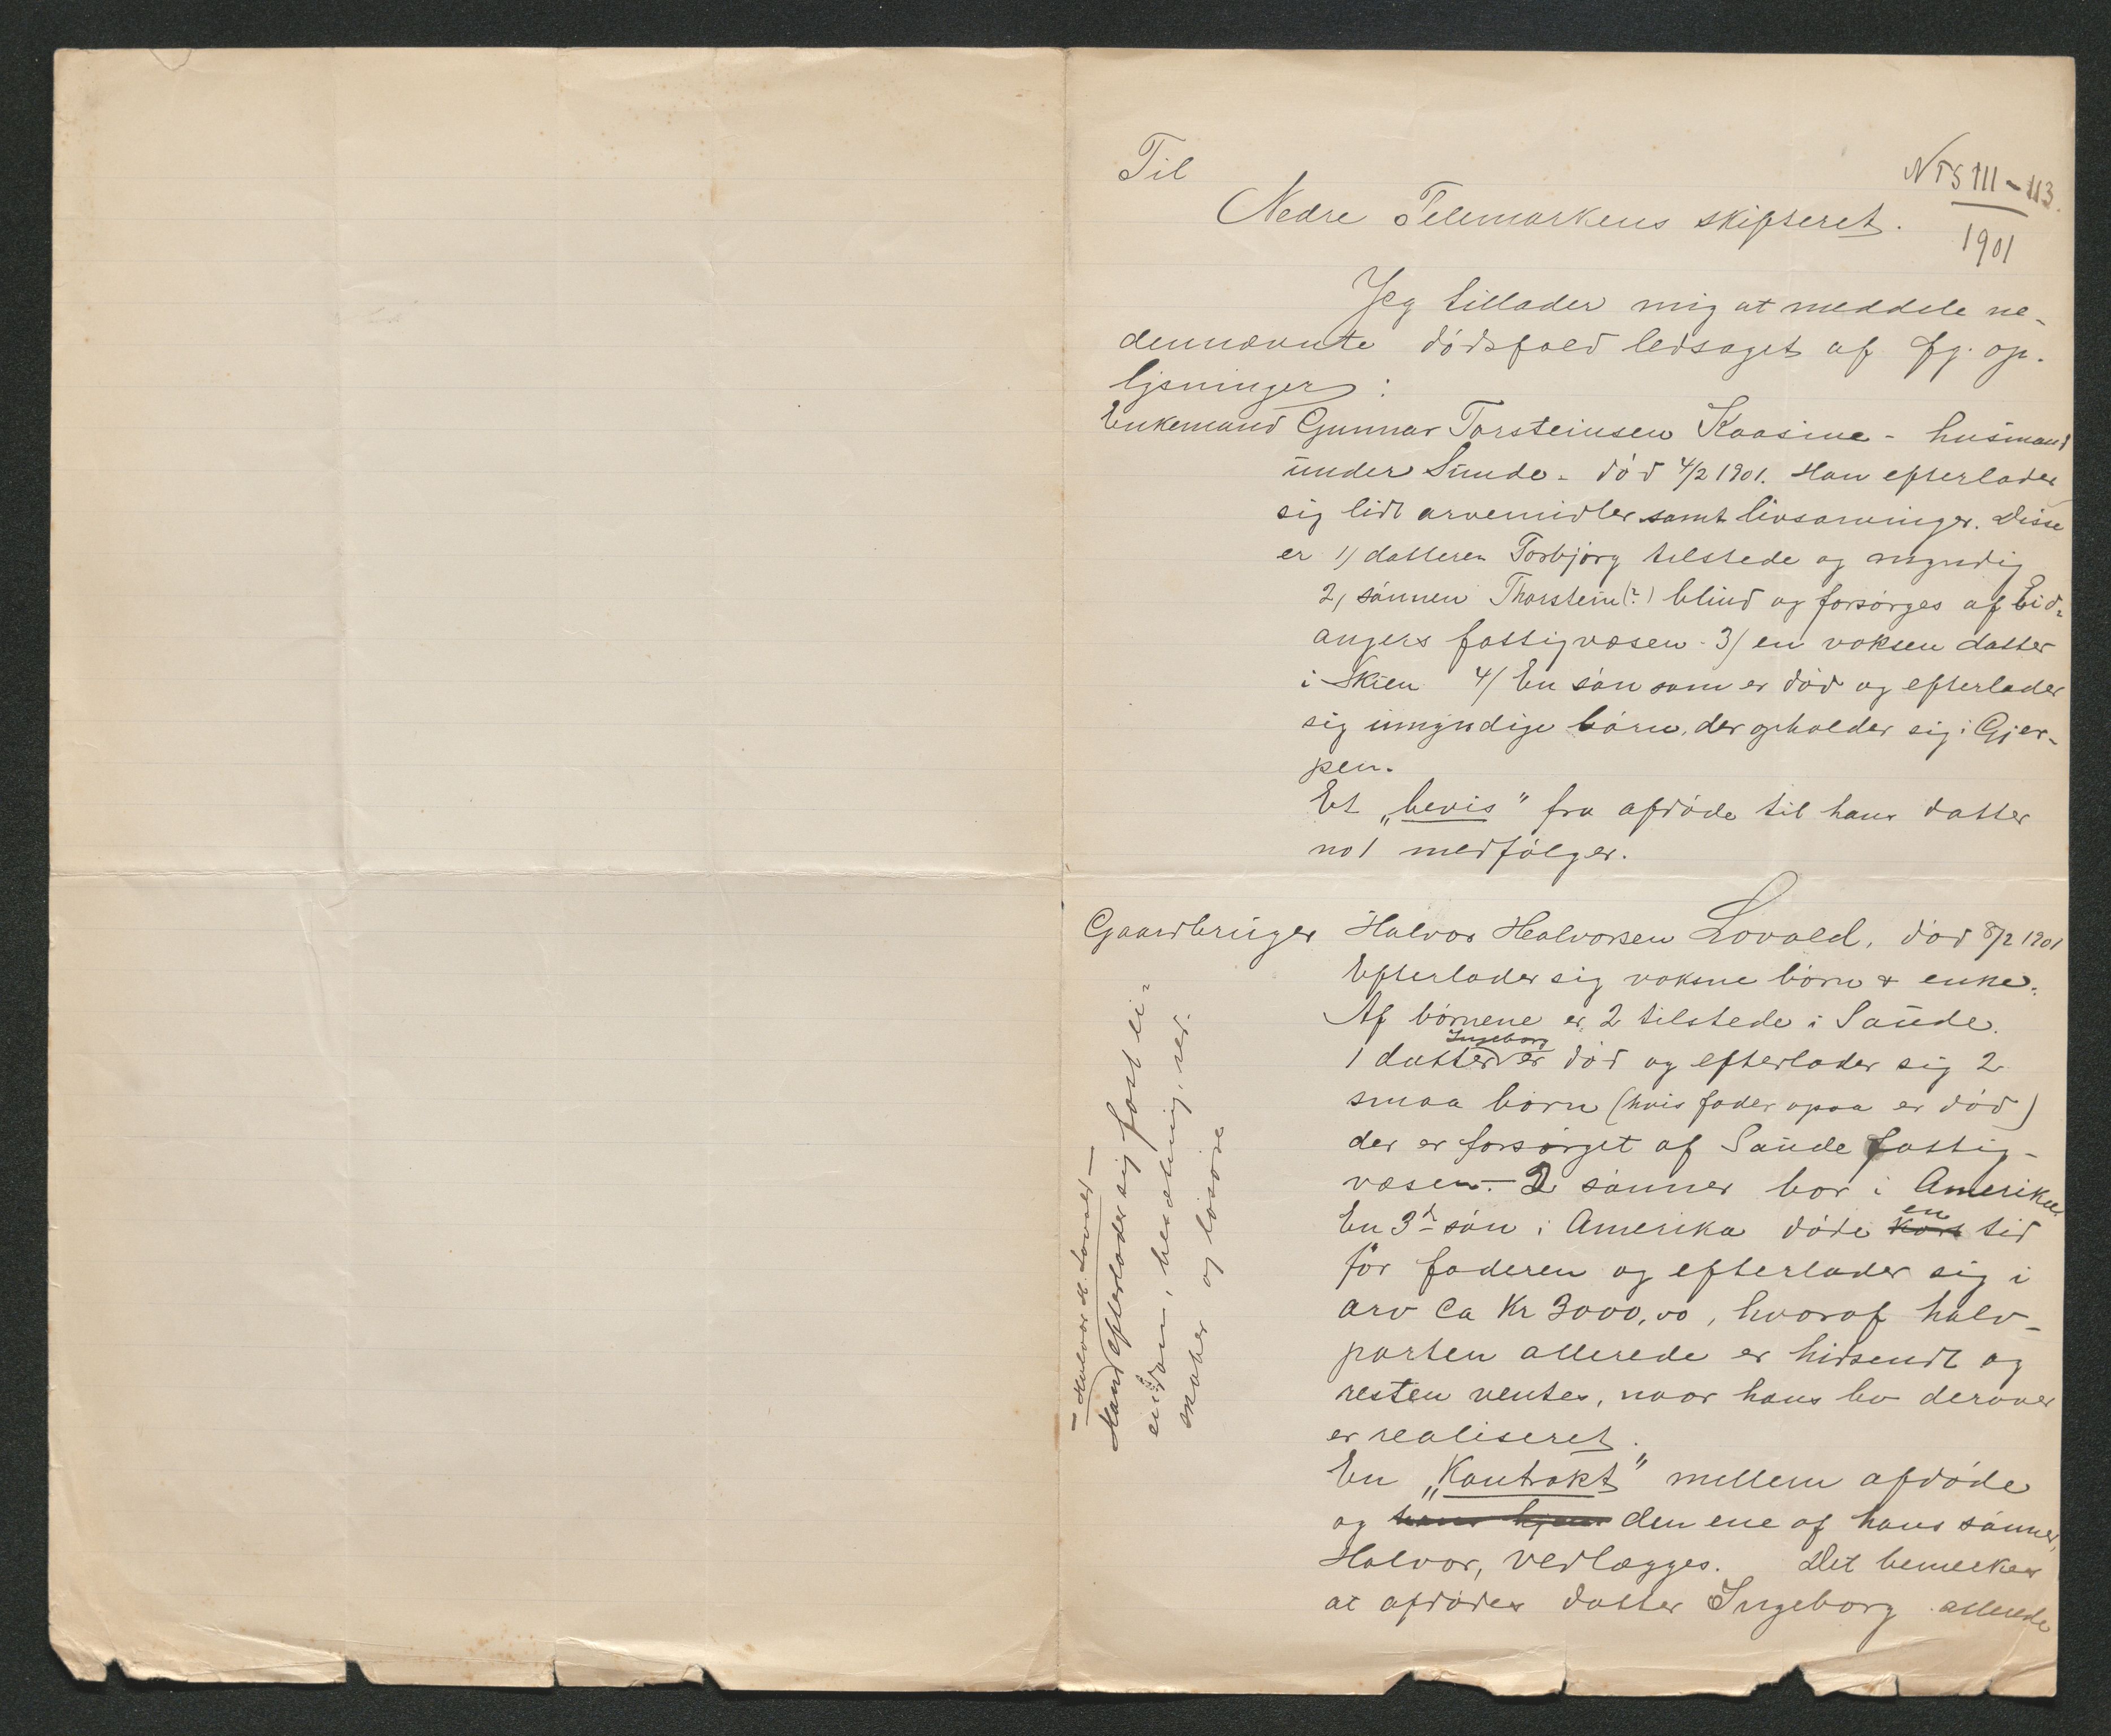 Til
NTS III - 113.
1901
Nedre Telemarkens skifteret.
Jeg tillader mig at meddele ne-
dennævnte dødsfald ledsaget af fg. op-
lysninger:
Enkemand Gunnar Torsteinsen Kaasine - husmand
under Sunde - død 4/2 1901. Han efterlader
sig lidt arvemidler samt livsarvinger. Disse
er 1/ datteren Torbjørg tilstede og myndig
2, sønnen Thorstein(?) blind og forsørges af Eid-
angers fattigvæsen - 3/ en voksen datter
i Skien 4/ En søn som er død og efterlader
sig umyndige børn, der opholder sig i Gjer-
pen.
Et „bevis" fra afdøde til hans datter
no 1 medfølger.
Gaardbruger Halvor Halvorsen Lovald, død 8/2 1901
Efterlader sig voksne børn & enke.
Af børnene er 2 tilstede i Saude.
Ingeborg
1 datter er død og efterlader sig 2
smaa børn (hvis fader opaa er død)
der er forsørget af Saude fattig-
væsen. - 2 sønner bor i Amerika
En 3d søn i Amerika døde kort en tid
før faderen og efterlader sig i
arv ca Kr 3000,00, hvoraf halv-
parten allerede er hidsendt og
resten ventes, naar hans bo derover
er realiseret.
En „Kontrakt" mellem afdøde
og den ene af hans sønner,
Halvor, vedlægges. Det bemerkes
at afdødes datter Ingeborg allerede
- Halvor H. Lovald -
Mand efterlader sig fast ei-
endom, besætning, red-
skaber og løsøre